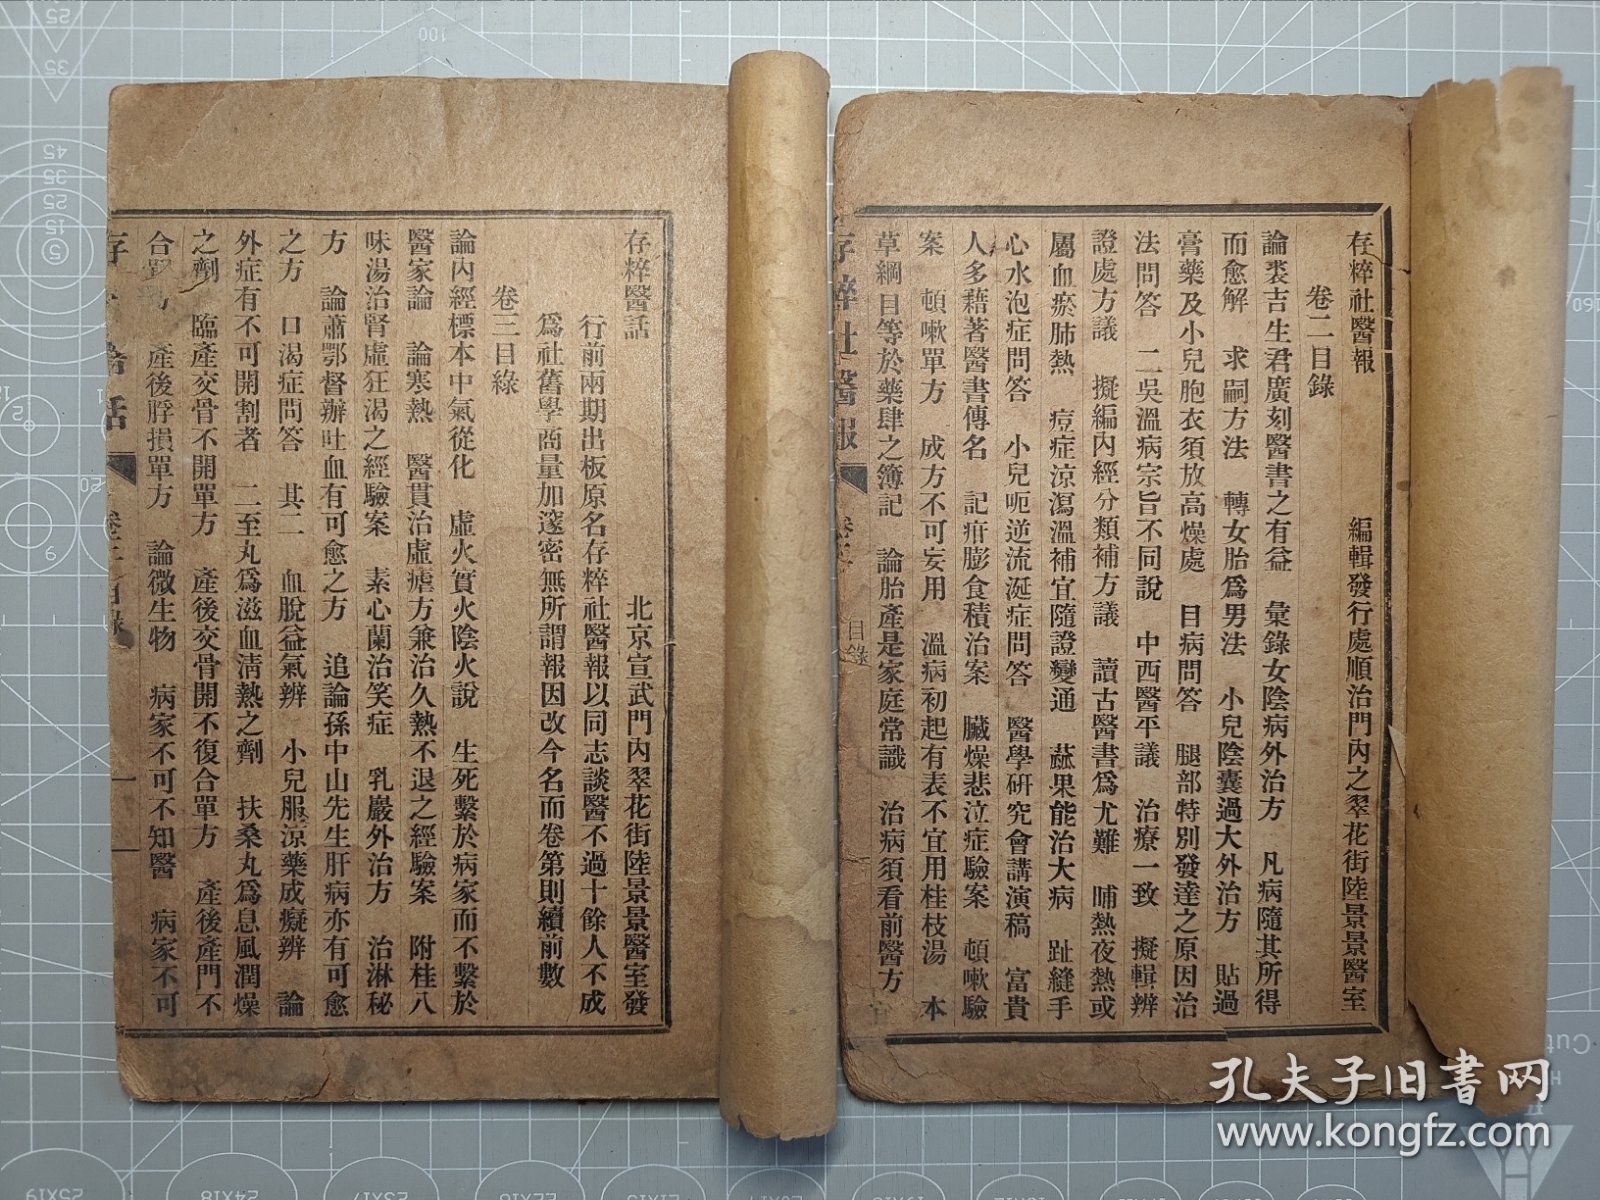 存粹社醫報　編輯發行處順治門內之翠花街陸景景醫室
卷二目錄
論裘吉生君廣刻醫書之有益　彙錄女陰病外治方　凡病隨其所得
而愈解　求嗣方法　轉女胎爲男法　小兒陰囊過大外治方　貼過
膏藥及小兒胞衣須放高燥處　目病問答　腿部特別發達之原因治
法問答　二吳溫病宗旨不同說　中西醫平議　治療一致　擬輯辨
證處方議　擬編內經分類補方議　讀古醫書爲尤難　晡熱夜熱或
屬血瘀肺熱　痘症涼瀉溫補宜隨證變通　蔴果能治大病　趾縫手
心水泡症問答　小兒呃逆流涎症問答　醫學硏究會講演稿　富貴
人多藉著醫書傳名　記疳膨食積治案　臟燥悲泣症驗案　頓嗽驗
案　頓嗽單方　成方不可妄用　溫病初起有表不宜用桂枝湯　本
草綱目等於藥肆之簿記　論胎產是家庭常識　治病須看前醫方
存粹社醫報　卷二　目錄
存粹醫話　北京宣武門內翠花街陸景景醫室發
行前兩期出板原名存粹社醫報以同志談醫不過十餘人不成
爲社舊學商量加邃密無所謂報因改今名而卷第則續前數
卷三目綠
論內經標本中氣從化　虛火實火陰火說　生死繫於病家而不繫於
醫家論　論寒熱　醫貫治虛瘧方兼治久熱不退之經驗案　附桂八
味湯治腎虛狂渴之經驗案　素心蘭治笑症　乳巖外治方　治淋秘
方　論蕭鄂督辦吐血有可愈之方　追論孫中山先生肝病亦有可愈
之方　口渴症問答　其二　血脫益氣辨　小兒服涼藥成癡辨　論
外症有不可開割者　二至丸爲滋血淸熱之劑　扶桑丸爲息風潤燥
之劑　臨產交骨不開單方　產後交骨開不復合單方　產後產門不
合單方　產後脬損單方　論微生物　病家不可不知醫　病家不可
存粹醫話　卷三　目錄　一
孔夫子旧书网
www.kongfz.com